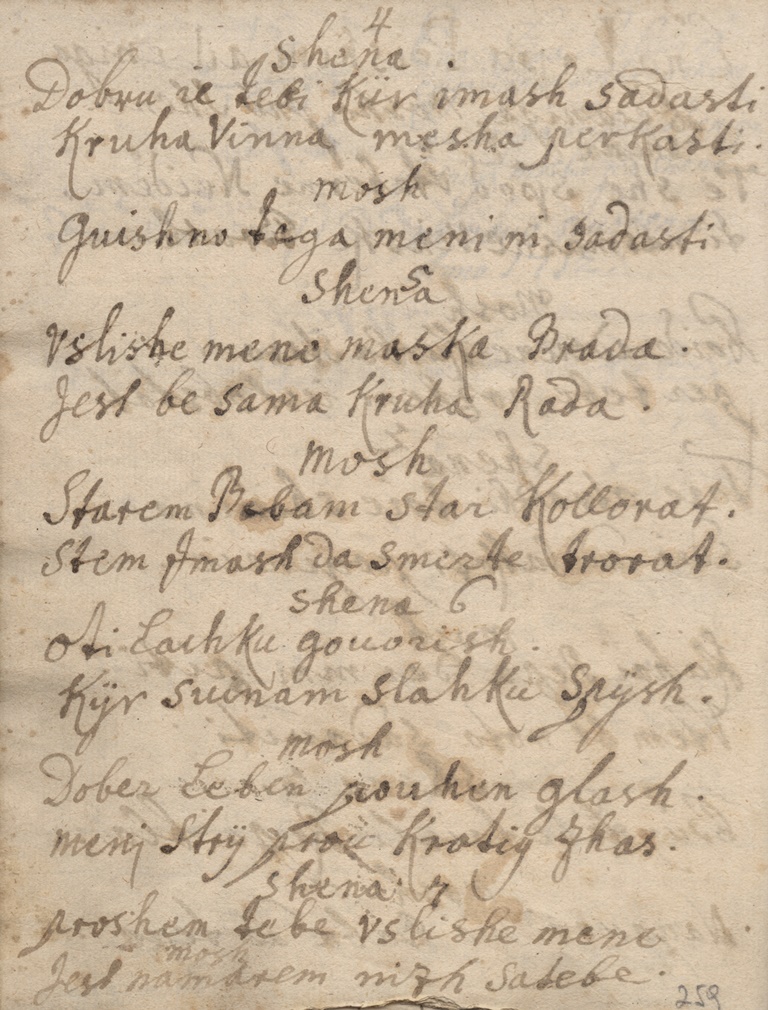 4
Shena .
Dobru ie tebi Kÿr imash sadasti
Kruha Vinna mesha perkasti.
mosh
Guishno tega meni ni sadasti
Shena 5
Vslishe mene maska Brada .
Jest be sama Kruha Rada .
Mosh
Starem Babam star Kollorat .
Stem Jmash da smerte trorat .
Shena 6
oti Lachku gouorish .
Kÿr suinam slahku Spÿsh .
mosh
Dober Leben pouhen glash .
meni Strÿ prou Kratig Zhas .
Shena 7
proshem tebe vslishe mene
mosh
Jest namarem nizh satebe .
259